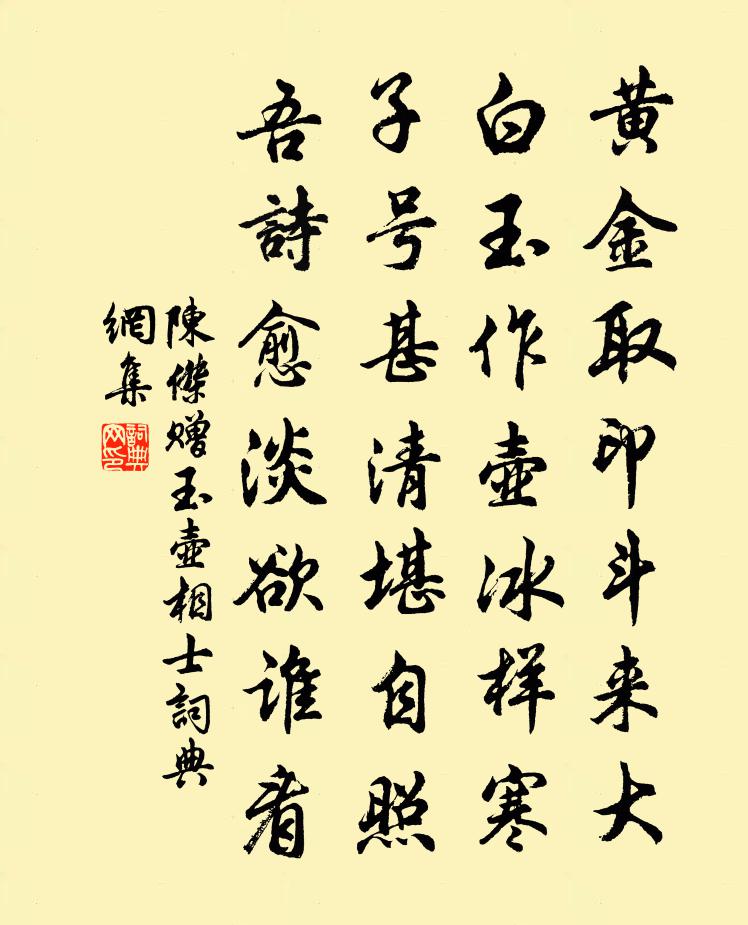 黄金取印斗来大
白玉作壺冰样寒
子号甚清堪自照
吾詩愈淡欲谁看
陳傑赠玉壺相士詞典
網集
詞典
网印